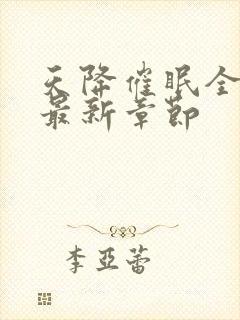 天降催眠全
最新章節
李亞蕾